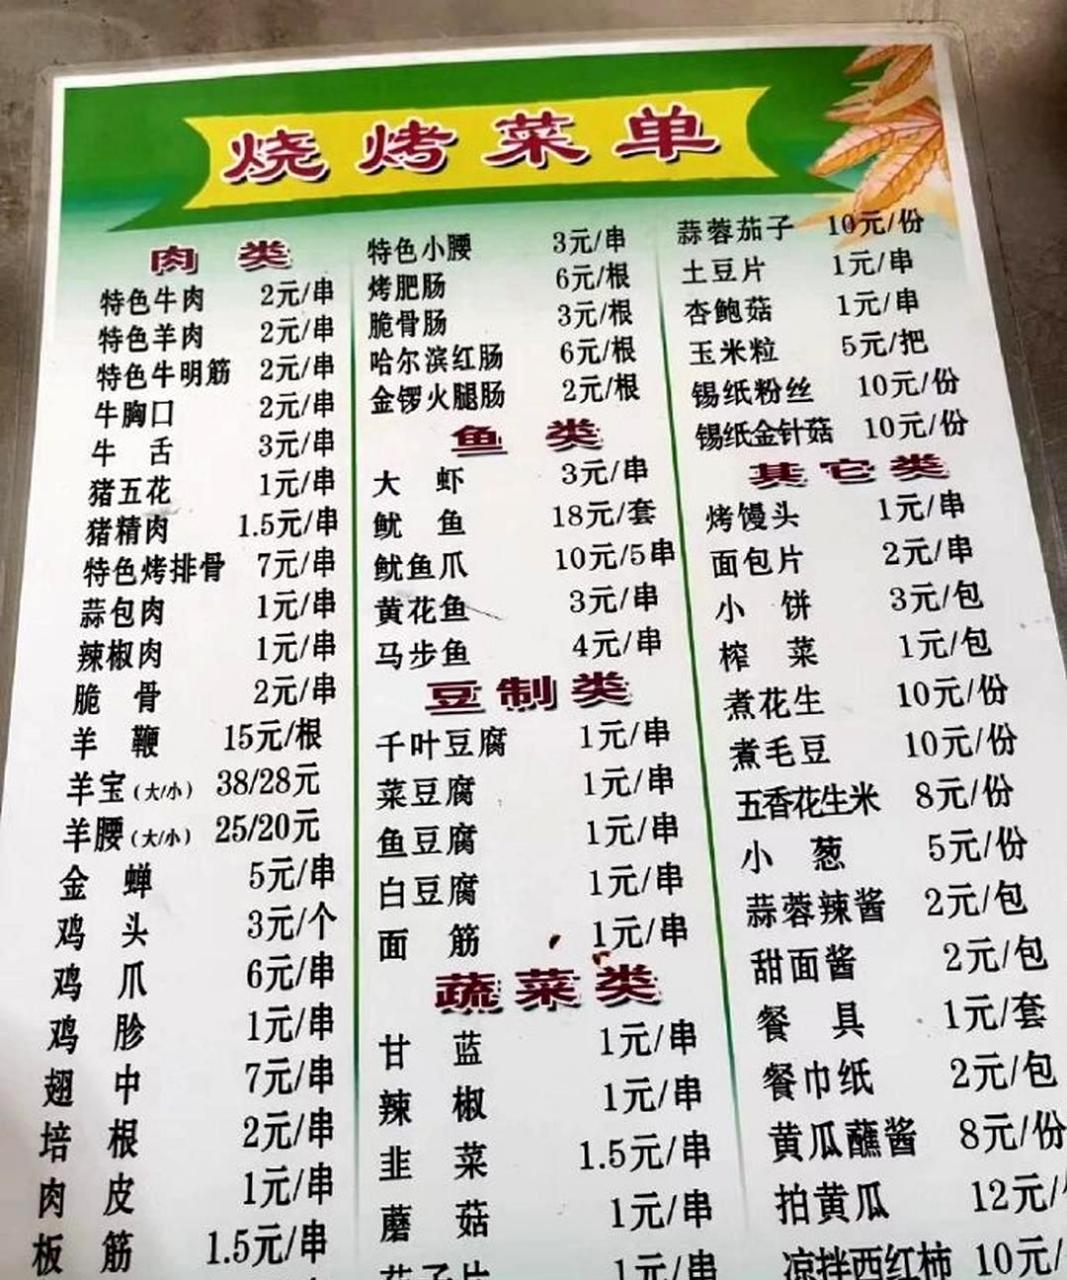 烧烤菜单
肉 类
特色牛肉 2元/串
特色羊肉 2元/串
特色牛明筋 2元/串
牛胸口 2元/串
牛 舌 3元/串
猪五花 1元/串
猪精肉 1.5元/串
特色烤排骨 7元/串
蒜包肉 1元/串
辣椒肉 1元/串
脆 骨 2元/串
羊 鞭 15元/根
羊宝(大/小) 38/28元
羊腰(大/小) 25/20元
金 蝉 5元/串
鸡 头 3元/个
鸡 爪 6元/串
鸡 胗 1元/串
翅 中 7元/串
培 根 2元/串
肉 皮 1元/串
板 筋 1.5元/串
特色小腰 3元/串
烤肥肠 6元/根
脆骨肠 3元/根
哈尔滨红肠 6元/根
金锣火腿肠 2元/根
鱼 类
大 虾 3元/串
鱿 鱼 18元/套
鱿鱼爪 10元/5串
黄花鱼 3元/串
马步鱼 4元/串
豆制类
千叶豆腐 1元/串
菜豆腐 1元/串
鱼豆腐 1元/串
白豆腐 1元/串
面 筋 1元/串
蔬菜类
甘 蓝 1元/串
辣 椒 1元/串
韭 菜 1.5元/串
蘑 菇 1元/串
茄子片 1元/串
蒜蓉茄子 10元/份
土豆片 1元/串
杏鲍菇 1元/串
玉米粒 5元/把
锡纸粉丝 10元/份
锡纸金针菇 10元/份
其它类
烤馒头 1元/串
面包片 2元/串
小 饼 3元/包
榨 菜 1元/包
煮花生 10元/份
煮毛豆 10元/份
五香花生米 8元/份
小 葱 5元/份
蒜蓉辣酱 2元/包
甜面酱 2元/包
餐 具 1元/套
餐巾纸 2元/包
黄瓜蘸酱 8元/份
拍黄瓜 12元/
凉拌西红柿 10元/